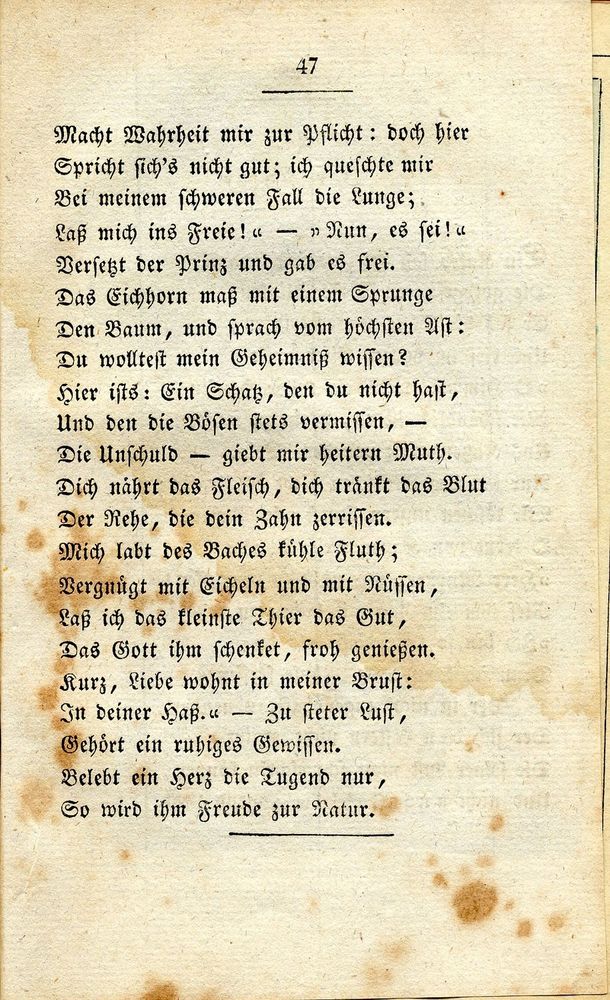 47
Macht Wahrheit mir zur Pflicht: doch hier
Spricht sich's nicht gut; ich queschte mir
Bei meinem schweren Fall die Lunge;
Laß mich ins Freie!“ — „Nun, es sei!“
Versetzt der Prinz und gab es frei.
Das Eichhorn maß mit einem Sprunge
Den Baum, und sprach vom höchsten Ast:
Du wolltest mein Geheimniß wissen?
Hier ists: Ein Schatz, den du nicht hast,
Und den die Bösen stets vermissen, —
Die Unschuld — giebt mir heitern Muth.
Dich nährt das Fleisch, dich tränkt das Blut
Der Rehe, die dein Zahn zerrissen.
Mich labt des Baches kühle Fluth;
Vergnügt mit Eicheln und mit Nüssen,
Laß ich das kleinste Thier das Gut,
Das Gott ihm schenket, froh genießen.
Kurz, Liebe wohnt in meiner Brust:
In deiner Haß.“ — Zu steter Lust,
Gehört ein ruhiges Gewissen.
Belebt ein Herz die Tugend nur,
So wird ihm Freude zur Natur.